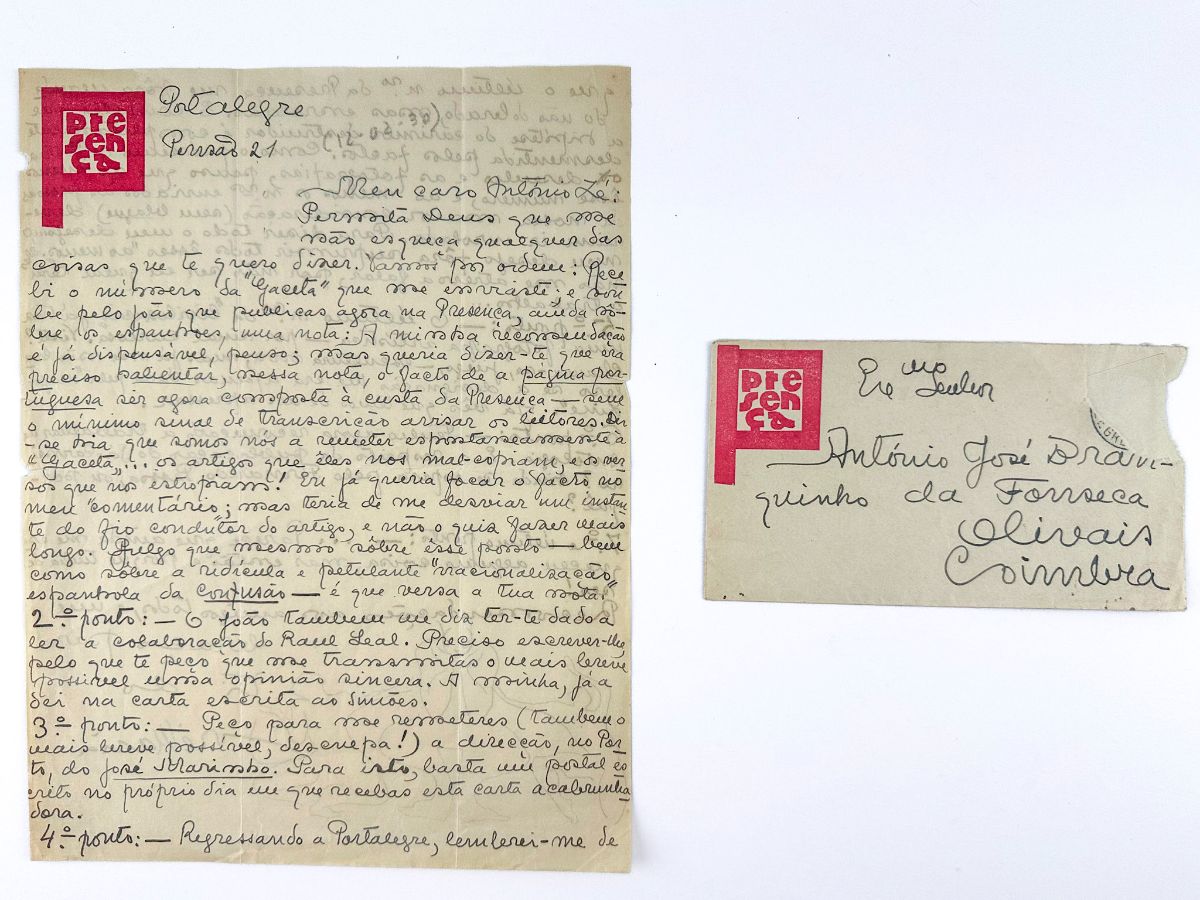 pre
sen
ça
Portalegre
Pensão 21
Meu caro António Zé:
Permita Deus que me
não esqueça qualquer das
coisas que te quero dizer. Vamos por ordem: Rece
bi o número da "Gaceta" que me enviaste; e sou
be pelo João que publicas agora na Presença, ainda sô-
bre os espanhoes, uma nota: A minha recomendação
é já dispensável, penso; mas queria dizer-te que era
preciso salientar, nessa nota, o facto de a página por-
tuguesa ser agora composta à custa da Presença — sem
o mínimo sinal de transcrição avisar os leitores. Dir-
-se-hia que somos nós a remeter espontaneamente à
"Gaceta"... os artigos que êles nos mal-copiam, e os ver
sos que nos estropiam! Eu já queria focar o facto no
meu "comentário"; mas teria de me desviar um instan-
te do fio condutor do artigo, e não o quis fazer mais
longo. Julgo que mesmo sôbre êsse ponto — bem
como sôbre a ridícula e petulante "racionalização"
espanhola da confusão — é que versa a tua nota.
2.º ponto: — O João tambem me diz ter-te dado a
ler a colaboração do Raul Leal. Preciso escrever-lhe,
pelo que te peço que me transmitas o mais breve
possivel uma opinião sincera. A minha, já a
dei na carta escrita ao Simões.
3.º ponto: — Peço para me remeteres (tambem o
mais breve possível, desculpa!) a direcção, no Por-
to, do José Marinho. Para isto, basta um postal es
crito no próprio dia em que recebas esta carta acabrunha
dora.
4.º ponto: — Regressando a Portalegre, lembrei-me de
pre
sen
ça
Exmo Senhor
António José Brani-
quinho da Fonseca
Olivais
Coimbra